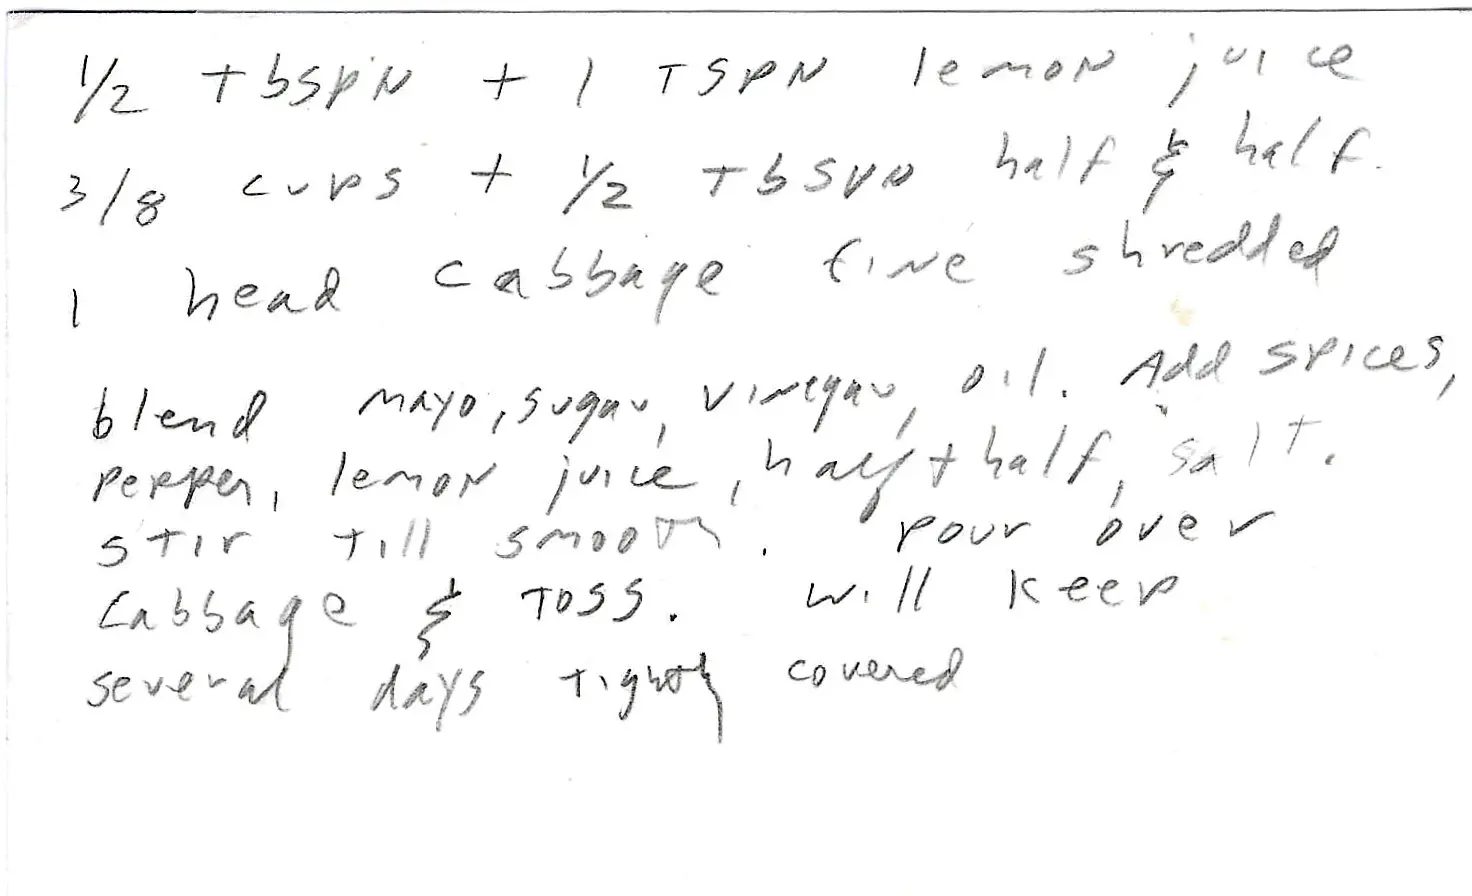 1/2 tbspn + 1 TSPN lemon juice
3/8 cups + 1/2 Tbspn half & half.
1 head cabbage fine shredded
blend mayo, sugar, vinegar, oil. Add spices,
pepper, lemon juice, half + half, salt.
stir till smooth. pour over
Cabbage & TOSS. will keep
several days tightly covered